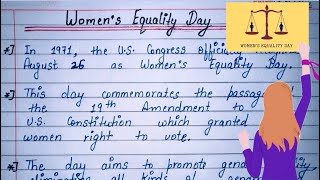 Women's Equality Day
*] In 1971, the U.S. Congress Officially
August 26 as Women's Equality Day.
WOMEN'S EQUALITY DAY
*] This day commemorates the passage
the 19th Amendment to
U.S. Constitution which granted
women right to vote.
*] The day aims to promote gender
eliminating all kinds of